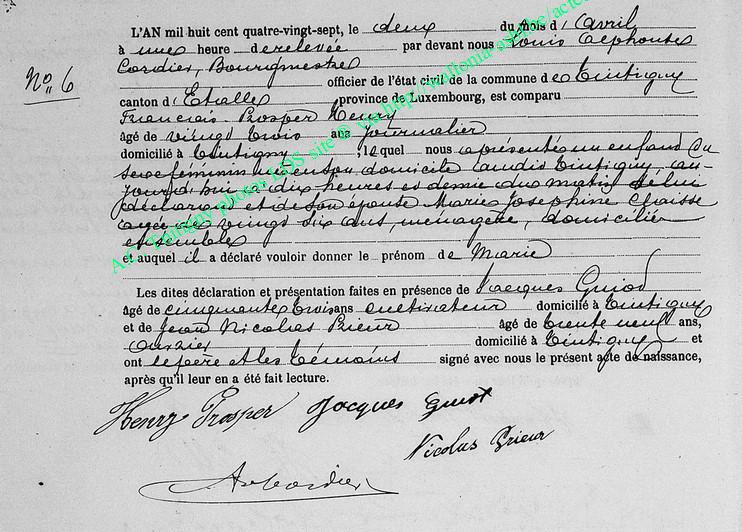 L'AN mil huit cent quatre-vingt-sept, le deux du mois d'Avril
à une heure derelevée par devant nous Louis Alphonse
Cordier, Bourgmestre
No 6
officier de l'état civil de la commune de Tintigny
canton d'Etalle province de Luxembourg, est comparu
Francois Prosper Henry
âgé de vingt trois ans journalier
domicilié à Tintigny, lequel nous aprésenté un enfant du
sexe féminin né en son domicile audit Tintigny, au-
jourd'hui a dix heures et demie du matin de lui
déclarant et de son épouse Marie Josephine
agée de vingt six ans, ménagère, domiciliée
ensemble
et auquel il a déclaré vouloir donner le prénom de Marie
Les dites déclaration et présentation faites en présence de Jacques Guiot
âgé de cinquante trois ans cultivateur domicilié à Tintigny
et de Jean Nicolas Prieur âgé de trente neuf ans,
domicilié à Tintigny et
ont le père et les témoins signé avec nous le présent acte de naissance,
après qu'il leur en a été fait lecture.
Henry Prosper Jacques Guiot
Nicolas Prieur
A.C. Tintigny photos LDS site @ via http://wallonia-asbl.be/acte